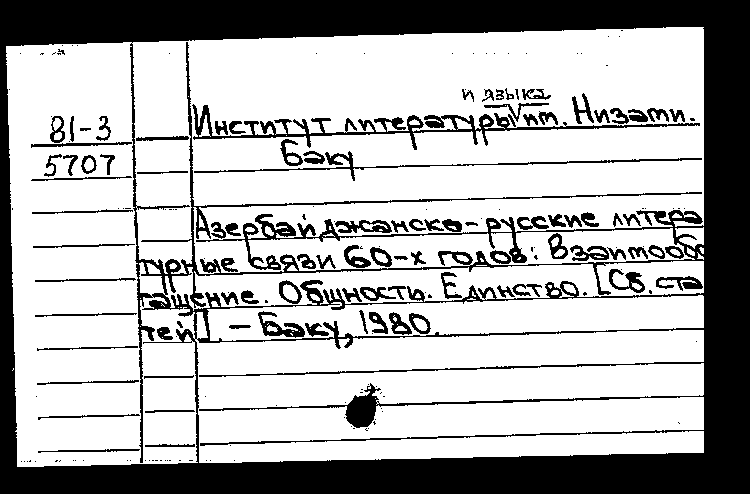 и языка
81-3 Институт литературы им. Низами.
5707 Баку
Азербайджанско-русские литера
турные связи 60-х годов: Взаимообо
гащение. Общность. Единство. [Сб. ста
тей]. – Баку, 1980.